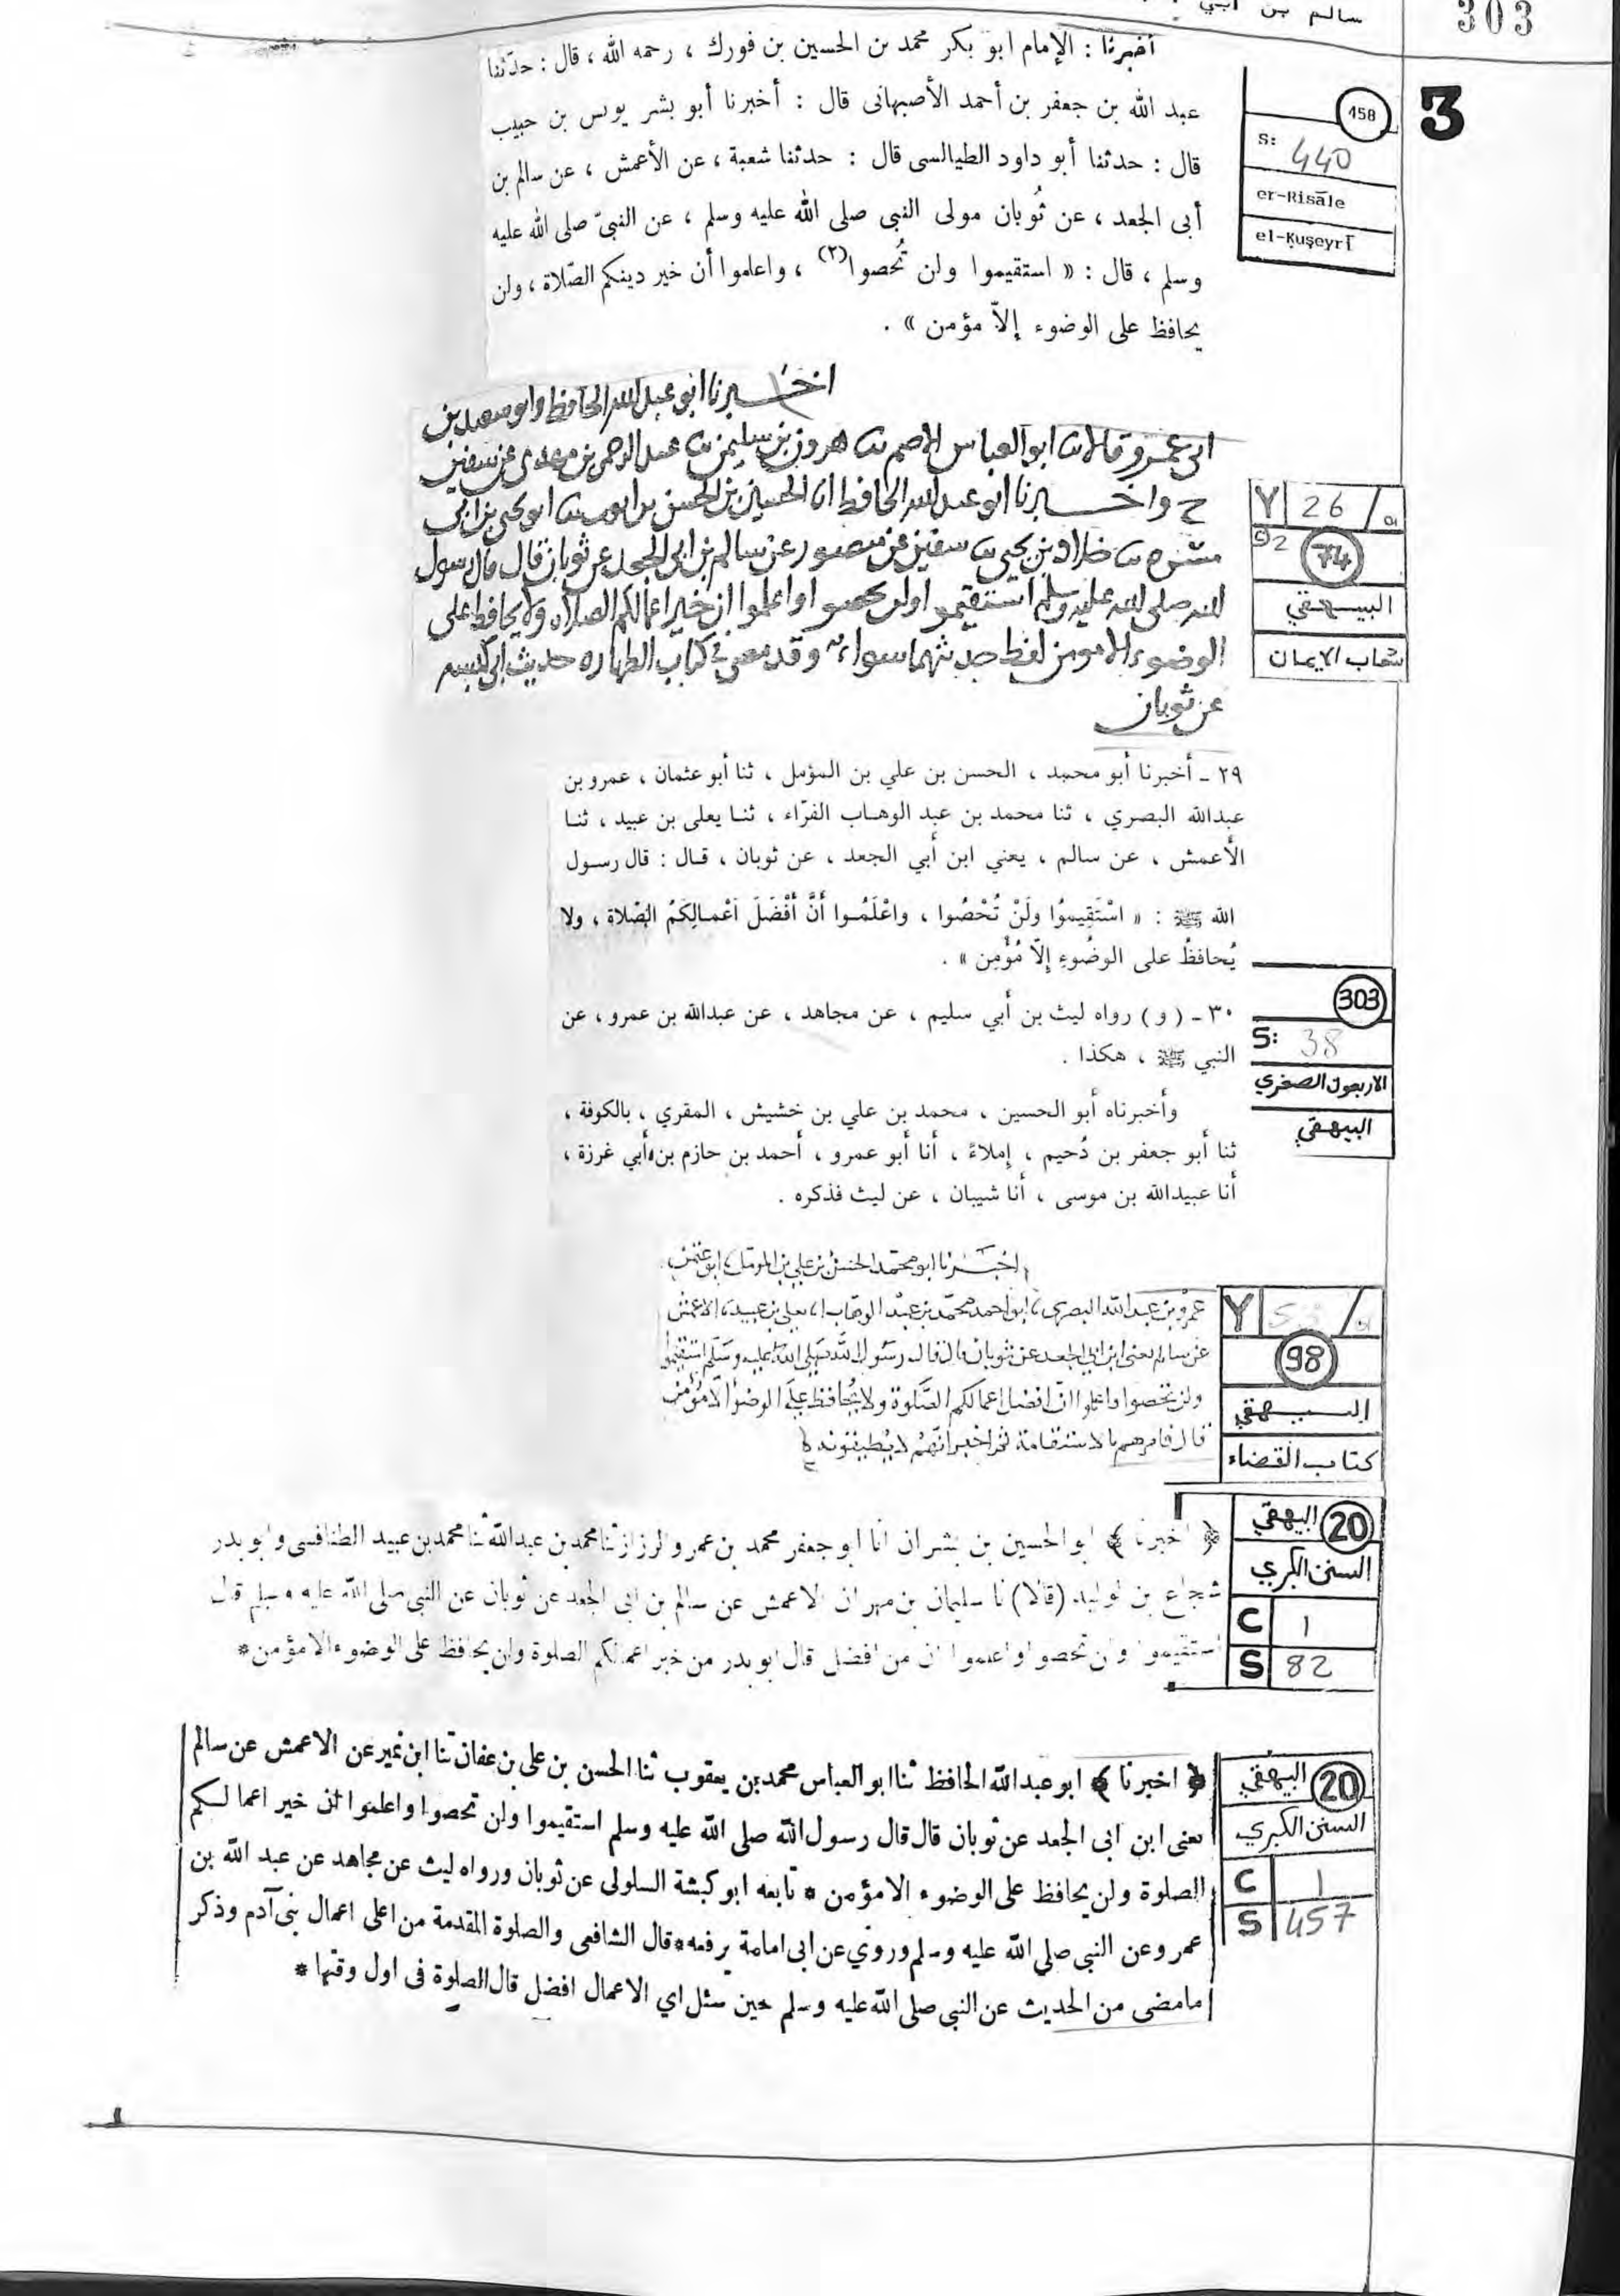 303
سالم بن أبي
3
أخبرنا : الإمام أبو بكر محمد بن الحسين بن فورك ، رحمه الله ، قال : حدثنا
عبد الله بن جعفر بن أحمد الأصبهانى قال : أخبرنا أبو بشر يونس بن حبيب
قال : حدثنا أبو داود الطيالسى قال : حدثنا شعبة ، عن الأعمش ، عن سالم بن
أبى الجعد ، عن ثُوبان مولى النبى صلى الله عليه وسلم ، عن النبىّ صلى الله عليه
وسلم ، قال : « استقيموا ولن تُحصوا(٢) ، واعلموا أن خير دينكم الصّلاة ، ولن
يحافظ على الوضوء إلاّ مؤمن » .
458
S: 440
er-Risāle
el-Ḳuşeyrī
اخبرنا ابو عبد الله الحافظ وابو سعيد بن
ابى عمرو قالا ثنا ابو العباس الاصم ثنا هرون بن سليمن ثنا عبد الرحمن بن مهدى عن سفين
ح واخبرنا ابو عبد الله الحافظ انا الحسين بن الحسن بن ايوب ثنا ابو يحيى بن ابى
مسره ثنا خلاد بن يحيى ثنا سفين عن منصور عن سالم بن ابى الجعد عن ثوبان قال قال رسول
الله صلى الله عليه وسلم استقيموا ولن تحصوا واعلموا ان خير اعمالكم الصلاه ولا يحافظ على
الوضوء الا مومن لفظ حديثهما سواء وقد مضى فى كتاب الطهاره حديث ابى كبشه
عن ثوبان
Y 26 /
74
البيهقي
شعاب الايمان
٢٩ ـ أخبرنا أبو محمد ، الحسن بن علي بن المؤمل ، ثنا أبو عثمان ، عمرو بن
عبدالله البصري ، ثنا محمد بن عبد الوهاب الفرّاء ، ثنا يعلى بن عبيد ، ثنا
الأعمش ، عن سالم ، يعني ابن أبي الجعد ، عن ثوبان ، قال : قال رسول
الله ﷺ : « اسْتَقِيموُا ولَنْ تُحْصُوا ، واعْلَمُوا أَنَّ أَفْضَلَ اَعْمالِكَمُ الصّلاة ، ولا
يُحافظُ على الوضُوءِ إِلّا مُؤْمِن » .
٣٠ ـ ( و ) رواه ليث بن أبي سليم ، عن مجاهد ، عن عبدالله بن عمرو ، عن
النبي ﷺ ، هكذا .
وأخبرناه أبو الحسين ، محمد بن علي بن خشيش ، المقري ، بالكوفة ،
ثنا أبو جعفر بن دُحيم ، إملاءً ، أنا أبو عمرو ، أحمد بن حازم بن أبي غرزة ،
أنا عبيدالله بن موسى ، أنا شيبان ، عن ليث فذكره .
303
S: 38
الاربعون الصغري
البيهقي
اخبرنا ابو محمد الحسن بن علي بن المومل ابو عثمن
عمرو بن عبد الله البصرى ابو احمد محمد بن عبد الوهاب يعلى بن عبيد الاعمش
عن سالم يعنى ابن ابي الجعد عن ثوبان قال قال رسول الله صلى الله عليه وسلم استقيموا
ولن تحصوا واعلموا ان افضل اعمالكم الصلوة ولا يحافظ على الوضوء الا مؤمن
قال فامرهم بالاستقامة ثم اخبر انهم لا يطيقونه
Y /
98
البيهقي
كتاب القضاء
﴿ اخبرنا ﴾ ابو الحسين بن بشران انا ابو جعفر محمد بن عمرو الرزاز ثنا محمد بن عبدالله ثنا محمد بن عبيد الطنافسى وابو بدر
شجاع بن الوليد (قالا) نا سليمان بن مهران الاعمش عن سالم بن ابى الجعد عن ثوبان عن النبى صلى الله عليه وسلم قال
استقيموا ولن تحصوا واعلموا ان من افضل قال ابو بدر من خير اعمالكم الصلوة ولن يحافظ على الوضوء الا مؤمن *
20 البيهقي
السنن الكبري
C 1
S 82
﴿ اخبرنا ﴾ ابو عبدالله الحافظ ثنا ابو العباس محمد بن يعقوب ثنا الحسن بن على بن عفان ثنا ابن نمير عن الاعمش عن سالم
يعنى ابن ابى الجعد عن ثوبان قال قال رسول الله صلى الله عليه وسلم استقيموا ولن تحصوا واعلموا ان خير اعمالكم
الصلوة ولن يحافظ على الوضوء الا مؤمن * تابعه ابو كبشة السلولى عن ثوبان ورواه ليث عن مجاهد عن عبد الله بن
عمرو عن النبى صلى الله عليه وسلم وروي عن ابى امامة يرفعه * قال الشافعى والصلوة المقدمة من اعلى اعمال بنى آدم وذكر
مامضى من الحديث عن النبى صلى الله عليه وسلم حين سئل اي الاعمال افضل قال الصلوة فى اول وقتها *
20 البيهقي
السنن الكبري
C 1
S 457